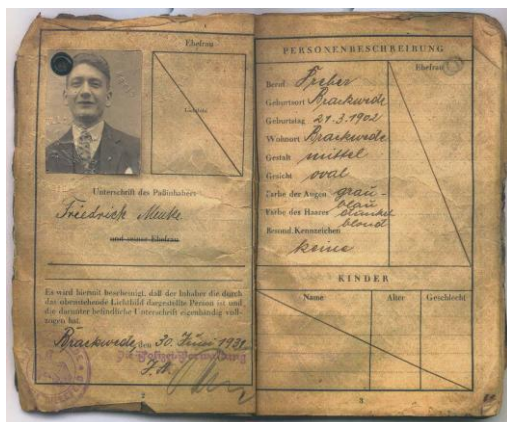 Ehefrau
Lichtbild
Unterschrift des Paßinhabers
Friedrich Menke
und seiner Ehefrau
Es wird hiermit bescheinigt, daß der Inhaber die durch
das obenstehende Lichtbild dargestellte Person ist und
die darunter befindliche Unterschrift eigenhändig voll-
zogen hat.
Brackwede, den 30. Juni 1931
Die Polizei-Verwaltung
J. A.
2
PERSONENBESCHREIBUNG
Ehefrau
Beruf
Geburtsort Brackwede
Geburtstag 21.3.1902
Wohnort Brackwede
Gestalt mittel
Gesicht oval
Farbe der Augen grau-
blau
Farbe des Haares dunkel
blond
Besond. Kennzeichen
keine
KINDER
Name Alter Geschlecht
3